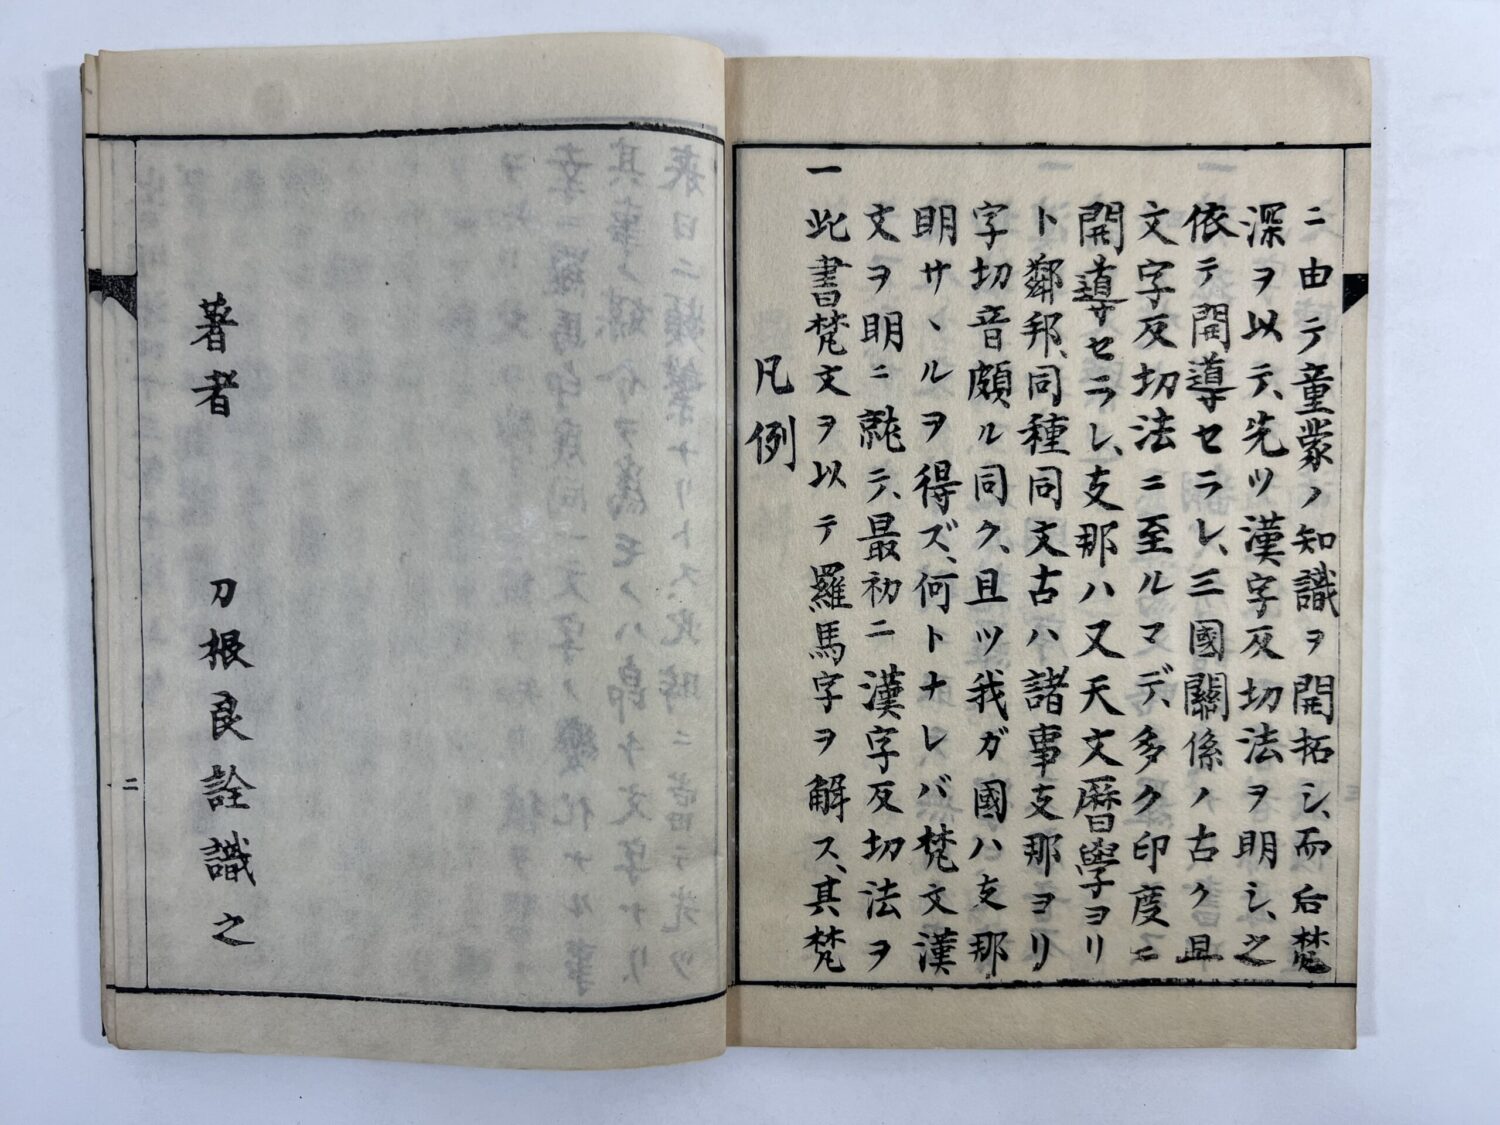 二
著者 刀根良詮識之
凡例
一 此書梵文ヲ以テ羅馬字ヲ解ス、其梵
文ヲ明ニ就テ、最初ニ漢字反切法ヲ
明サヽルヲ得ズ、何トナレバ梵文漢
字切音頗ル同ク、且ツ我ガ國ハ支那
ト鄰邦、同種同文古ハ諸事支那ヨリ
開導セラレ、支那ハ又天文曆學ヨリ
文字反切法ニ至ルマデ、多ク印度ニ
依テ開導セラレ、三國關係ノ古ク且
深ヲ以テ、先ツ漢字反切法ヲ明シ、之
ニ由テ童蒙ノ知識ヲ開拓シ、而后梵